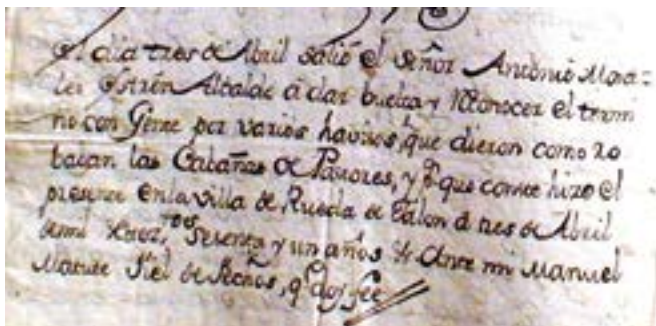 El dia tres de Abril salió el Señor Antonio Mora=
les Alcalde á dar buelta y Reconocer el termi
no con Gente por varios havisos, que dieron como ro
baban las Cabañas de Pastores, y pª que conste hizo el
presente en la villa de Rueda de Jalon á tres de Abril
de mil Setez.tos Sesenta y un años Ante mi Manuel
fiel de fechos, q.e doy fee